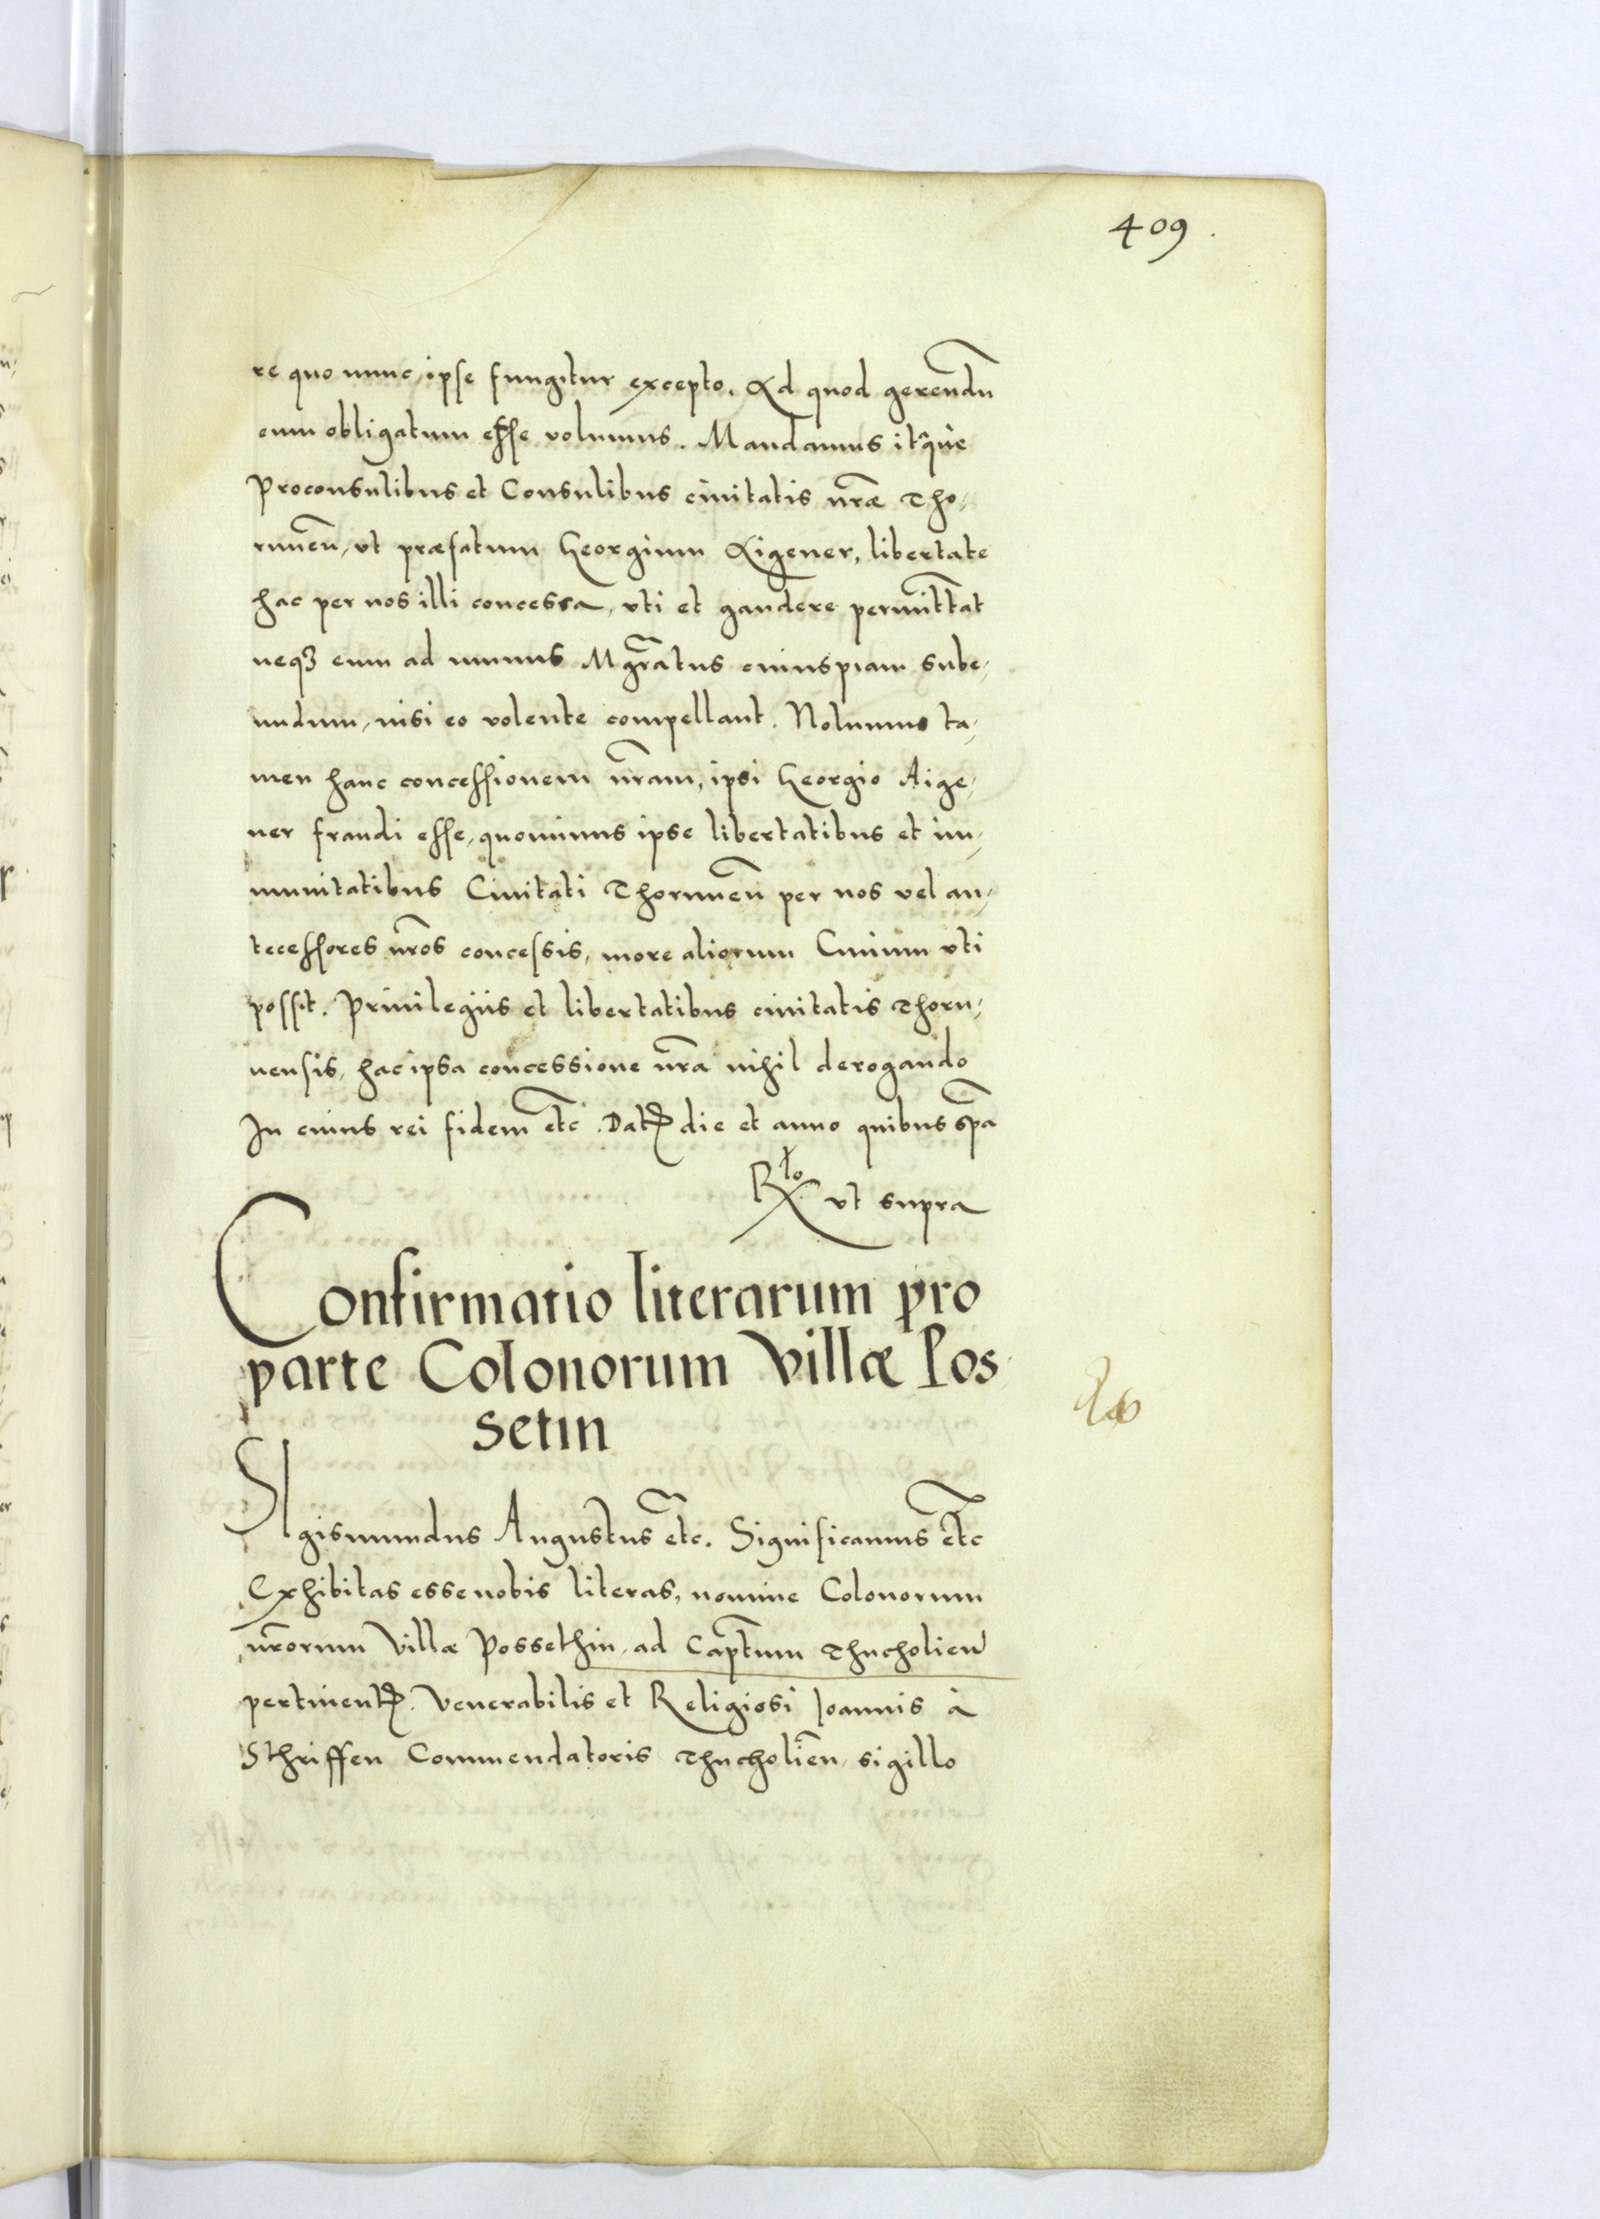 409.
re quo nunc, ipse fungitur excepto. Ad quod gerendũ
eum obligatum esse volumus. Mandamus itq̃ue
Proconsulibus et Consulibus ciuitatis nr̃æ Tho,
runeñ, vt præfatum Georgium Aigener, libertate
hac per nos illi concessa, vti et gaudere permittãt
neqꝫ eum ad munus Mgr̃atus cuiuspiam sube,
undum, nisi eo volente compellant. Nolumus ta,
men hanc concessionem nr̃am, ipsi Georgio Aige,
ner fraudi esse, quominus ipse libertatibus et im,
munitatibus Ciuitati Thoruneñ per nos vel an,
tecessores nr̃os concessis, more aliorum Ciuium vti
possit. Priuilegijs et libertatibus ciuitatis Thoru,
nensis, hac ipsa concessione nr̃a nihil derogando
In cuius rei fidem etc̃. Datꝭ die et anno quibus sp̃a
Rło vt supra
Confirmatio literarum pro
parte Colonorum Villæ Pos,
setin
SIgismundus Augustus etc̃. Significamus etc̃
Exhibitas esse nobis literas, nomine Colonorum
nr̃orum Villæ Possethin, ad Captũm Thucholieñ
pertinentꝭ. Venerabilis et Religiosi Ioannis à
Sthriffen Commendatoris Thucholieñ, sigillo